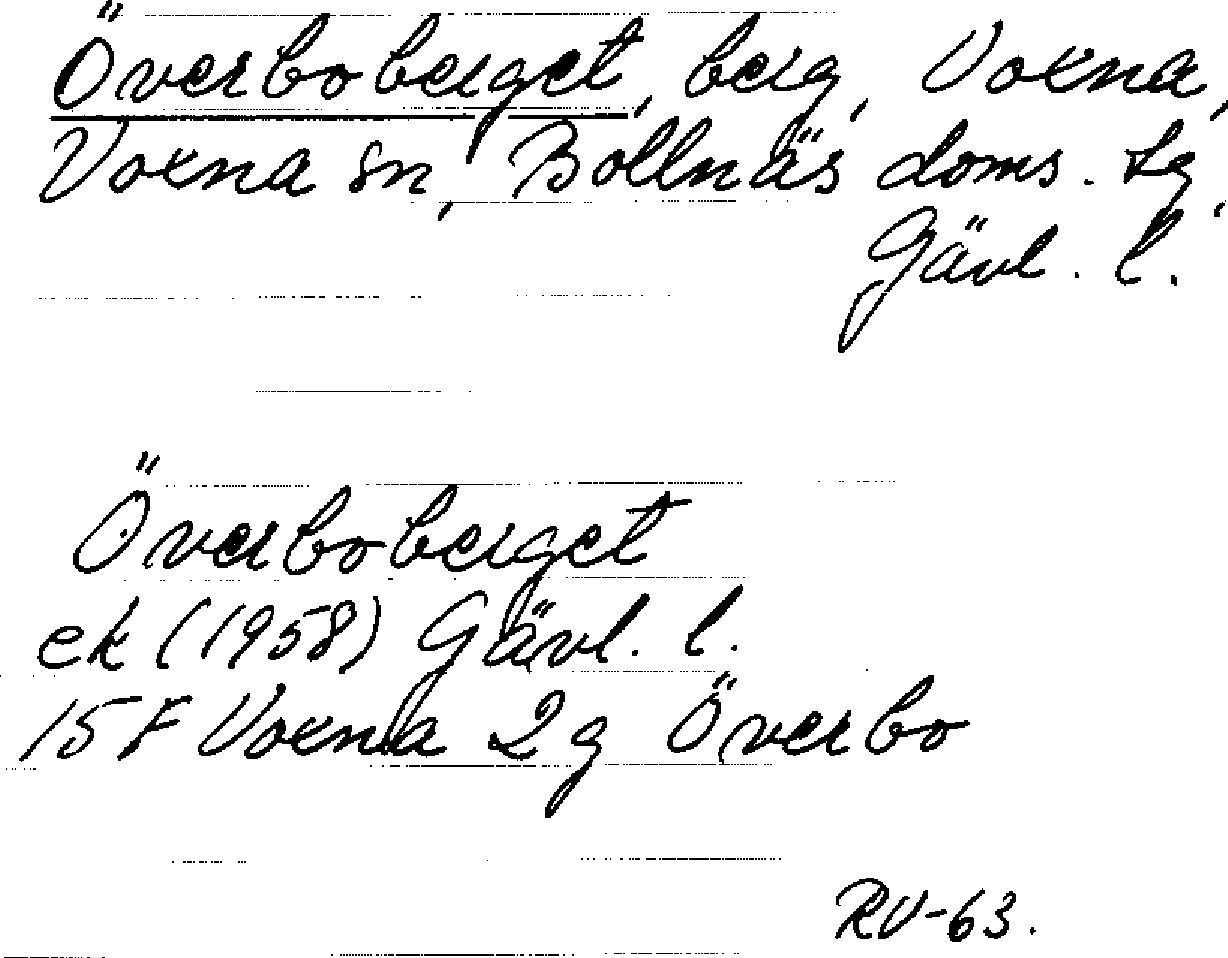 Överboberget, berg, Voxna,
Voxna sn, Bollnäs doms. tg,
Gävl. l.
Överboberget
ek (1958) Gävl. l.
15 F Voxna 2 g Överbo
RV-63.